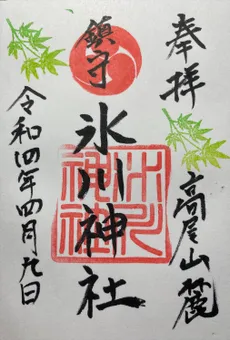 奉拝
高尾山麓
鎮守
氷川神社
氷川
神社
令和四年四月九日